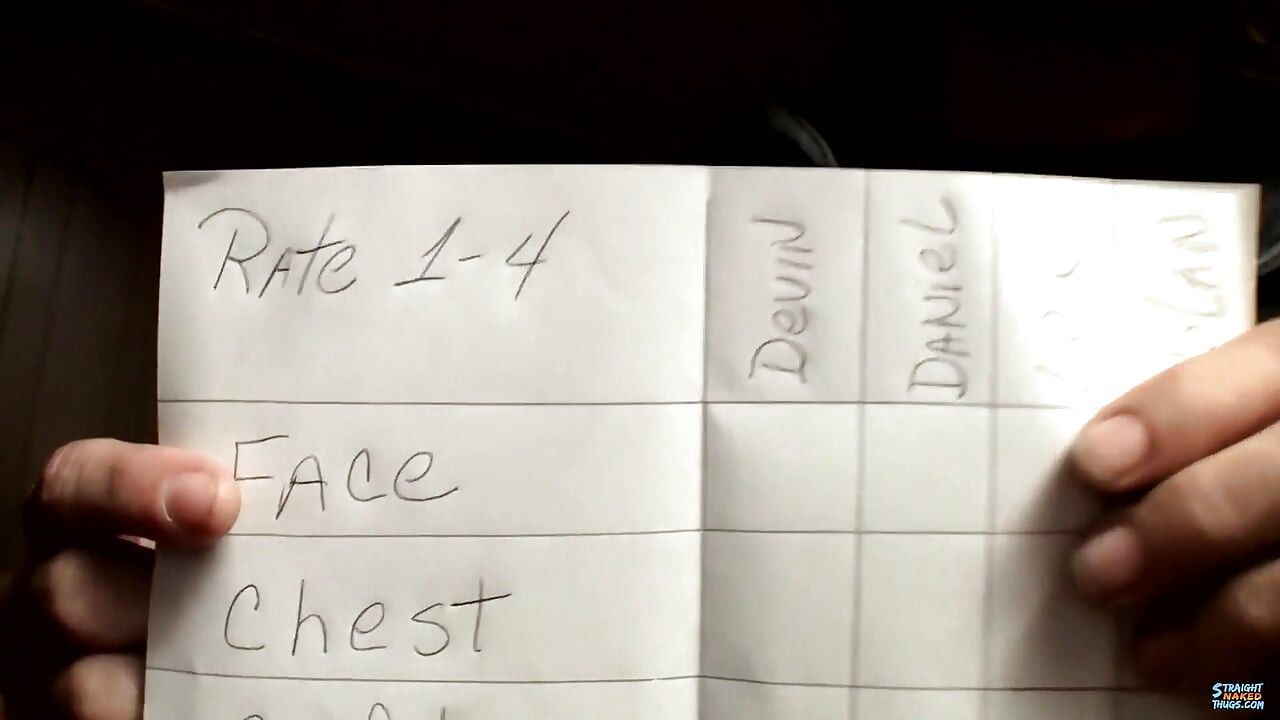 Rate 1-4
Devin
Daniel
Face
Chest
STRAIGHT
NAKED
THUGS.COM